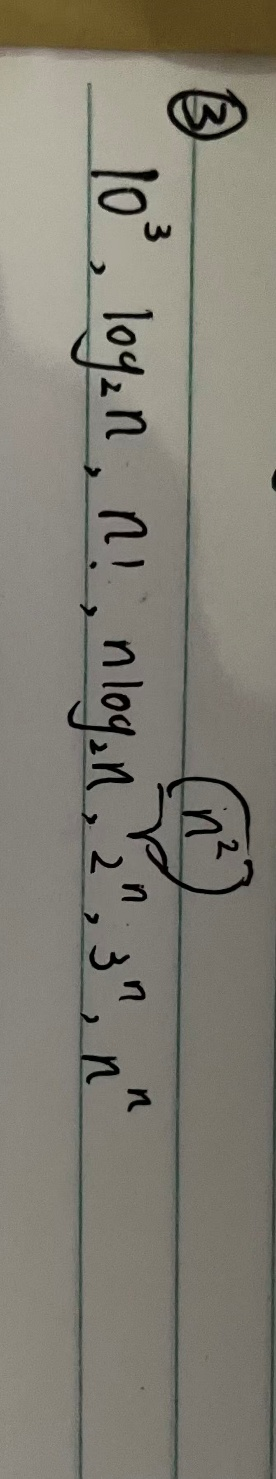 ③
10³, log₂n, n!, nlog₂n, n², 2ⁿ, 3ⁿ, nⁿ